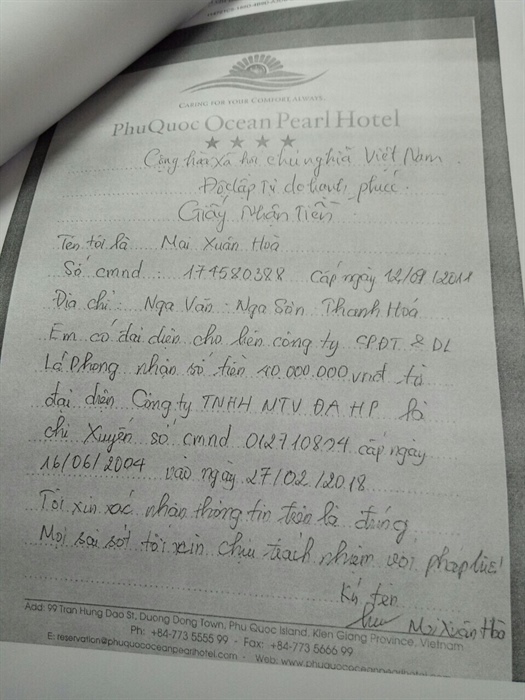 CARING FOR YOUR COMFORT ALWAYS
PhuQuoc Ocean Pearl Hotel
Cộng hòa xã hội chủ nghĩa Việt Nam
Độc lập Tự do hạnh phúc.
Giấy Nhận Tiền
Tên tôi là Mai Xuân Hoà
Số cmnd: 174580388 Cấp ngày 12/09/2011
Địa chỉ: Nga Văn - Nga Sơn Thanh Hoá
Em có đại diện cho bên công ty CPDT & DL
Lá Phong nhận số tiền 10.000.000 vnđ từ
đại diện Công ty TNHH MTV ĐA HP là
chị Xuyến số cmnd 012710894 cấp ngày
16/06/2004 vào ngày 27/02/2018
Tôi xin xác nhận thông tin trên là đúng
Mọi sai sót tôi xin chịu trách nhiệm với pháp luật
Ký tên
Mai Xuân Hoà
Add: 99 Tran Hung Dao St, Duong Dong Town, Phu Quoc Island, Kien Giang Province, Vietnam
Ph: +84-773 5555 99 - Fax: +84-773 5666 99
E: reservation@phuquococeanpearlhotel.com - Web: www.phuquococeanpearlhotel.com